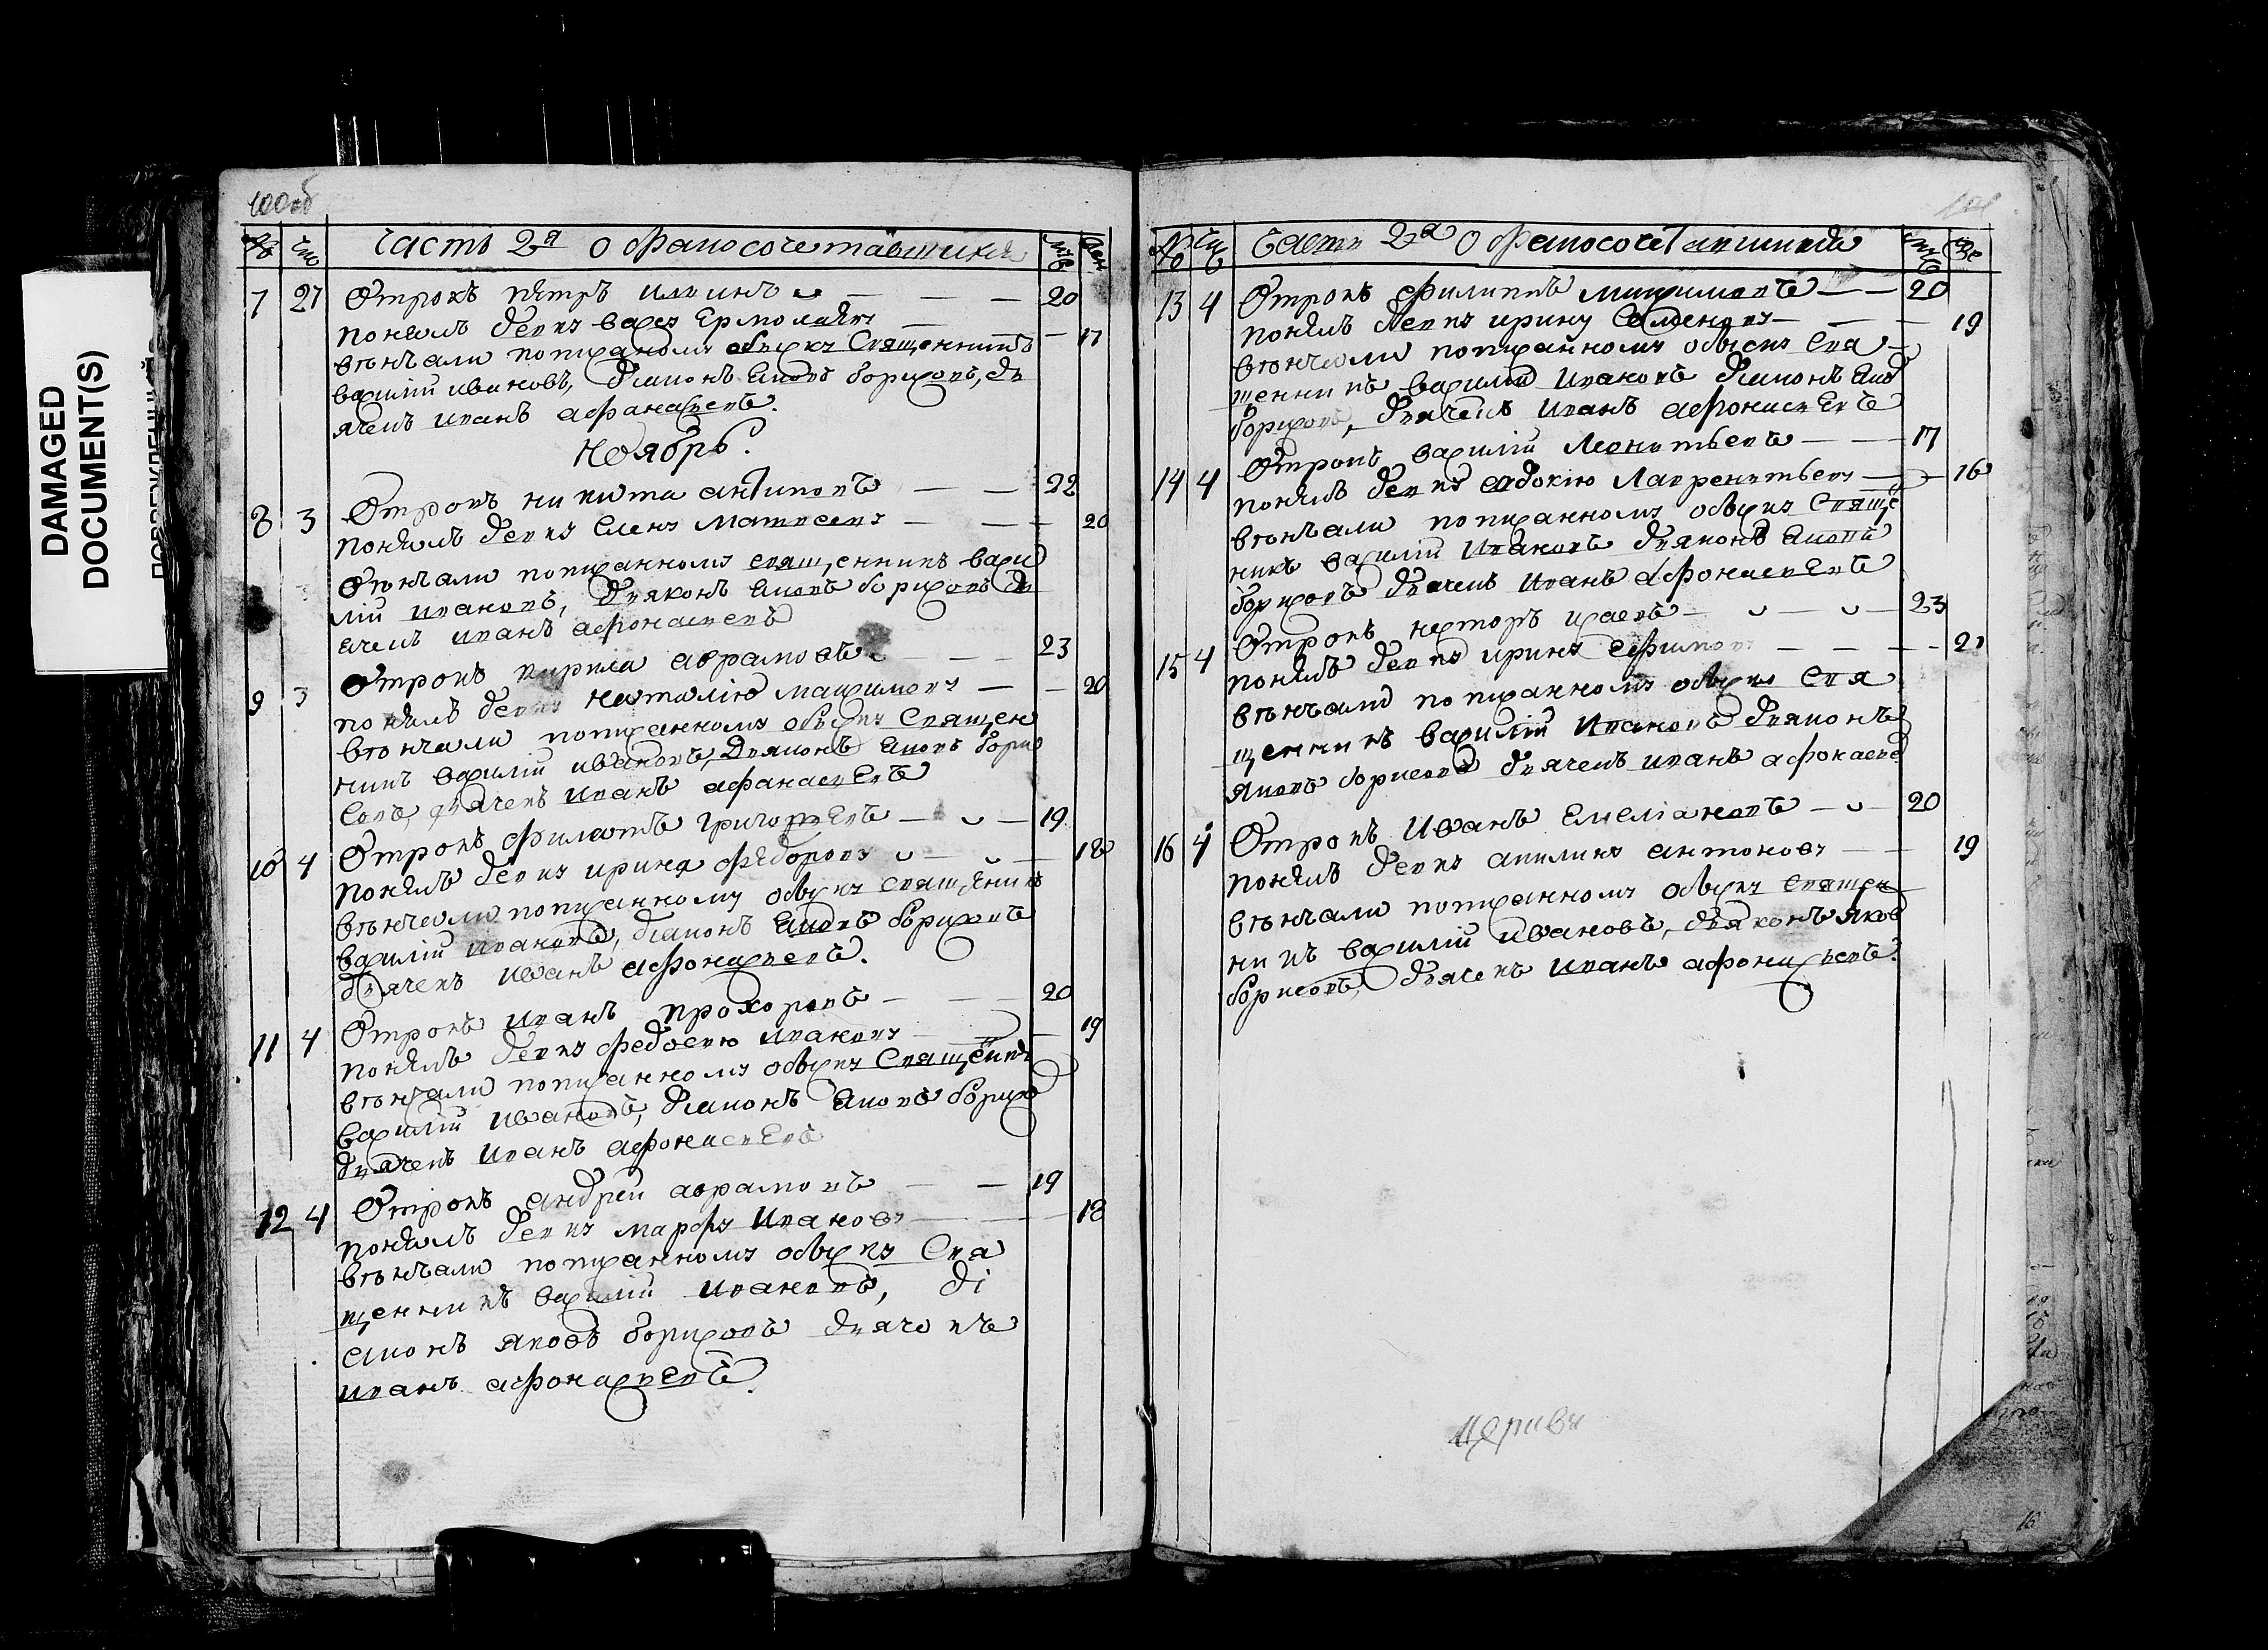 DAMAGED
DOCUMENT(S)
100об
№ чис Часть 2я о бракосочетавшихся
7 27 Отрокъ пётръ илиинъ — — — 20
понялъ девкꙋ васꙋ Ермолаевꙋ — — 17
вѣнчали попиѕаномꙋ обыскꙋ Священникъ
василій ивановъ, діаконъ Яковъ борисовъ, дь
ячекъ иванъ афанасьевъ.
Ноябрь.
8 3 Отрокъ никита антиповъ — — 22
понялъ девкꙋ Еленꙋ Матвеевꙋ — — 20
Вѣнчали пописанномꙋ священникъ васи
лій ивановъ, дьяконъ Яковъ борисовъ дь
ячекъ иванъ афонасьевъ
9 3 Отрокъ кирила аврамовъ — — 23
понялъ девкꙋ Наталію максимовꙋ — — 20
вѣнчали пописанномꙋ обыскꙋ Священ
никъ василій ивановъ, Дьяконъ Яковъ бори
совъ, дьячекъ иванъ афанасьевъ
10 4 Отрокъ филатъ григорьевъ — 19
понялъ девкꙋ ирина фёдоровꙋ — 18
вѣнчали пописанному обыскꙋ священикъ
василій ивановъ, діаконъ Яковъ борисовъ
дьячекъ иванъ афонасьевъ.
11 4 Отрокъ иванъ прохоровъ — — 20
понялъ девкꙋ федосью ивановꙋ — 19
вѣнчали пописанномꙋ обыскꙋ Священикъ
василій ивановъ, діаконъ Яковъ борисо
дьячекъ иванъ афонасьевъ
12 4 Отрокъ андрей аврамовъ — — 19
понялъ девкꙋ марфꙋ Ивановꙋ — — 18
вѣнчали пописанномꙋ обыскꙋ Свя
щенникъ василій ивановъ, ді
аконъ яковъ борисовъ дьячекъ
иванъ афонасьевъ.
Часть 2я О бракосочетавшихся
13 4 Отрокъ филиппъ максимовъ — — 20
понялъ девкꙋ ирину Семеновꙋ — — 19
вѣнчали пописанномꙋ обыскꙋ Свя
щенникъ василій Ивановъ діаконъ Яков
борисовъ, дьячекъ иванъ афонасьевъ
14 4 Отрокъ василій Леонтьевъ — — 17
понялъ девкꙋ евдокію Лаврентьевꙋ — — 16
вѣнчали пописанномꙋ обыскꙋ Священ
никъ василій Ивановъ дьяконъ Яковъ
борисовъ дьячекъ иванъ афонасьевъ
15 4 Отрокъ несторъ исаевъ — — 23
понялъ девкꙋ иринꙋ ефимовꙋ — — 21
вѣнчали пописанномꙋ обыскꙋ Свя
щенникъ василій Ивановъ дьяконъ
Яковъ борисовъ дьячекъ иванъ афонасев
16 4 Отрокъ Иванъ Емеліановъ — 20
понялъ девкꙋ акилинꙋ антоновꙋ — — 19
вѣнчали пописанномꙋ обыскꙋ священ
никъ василій ивановъ, дьяконъ яков
борисовъ, дьячекъ иванъ афонасьевъ.
Церкви
16